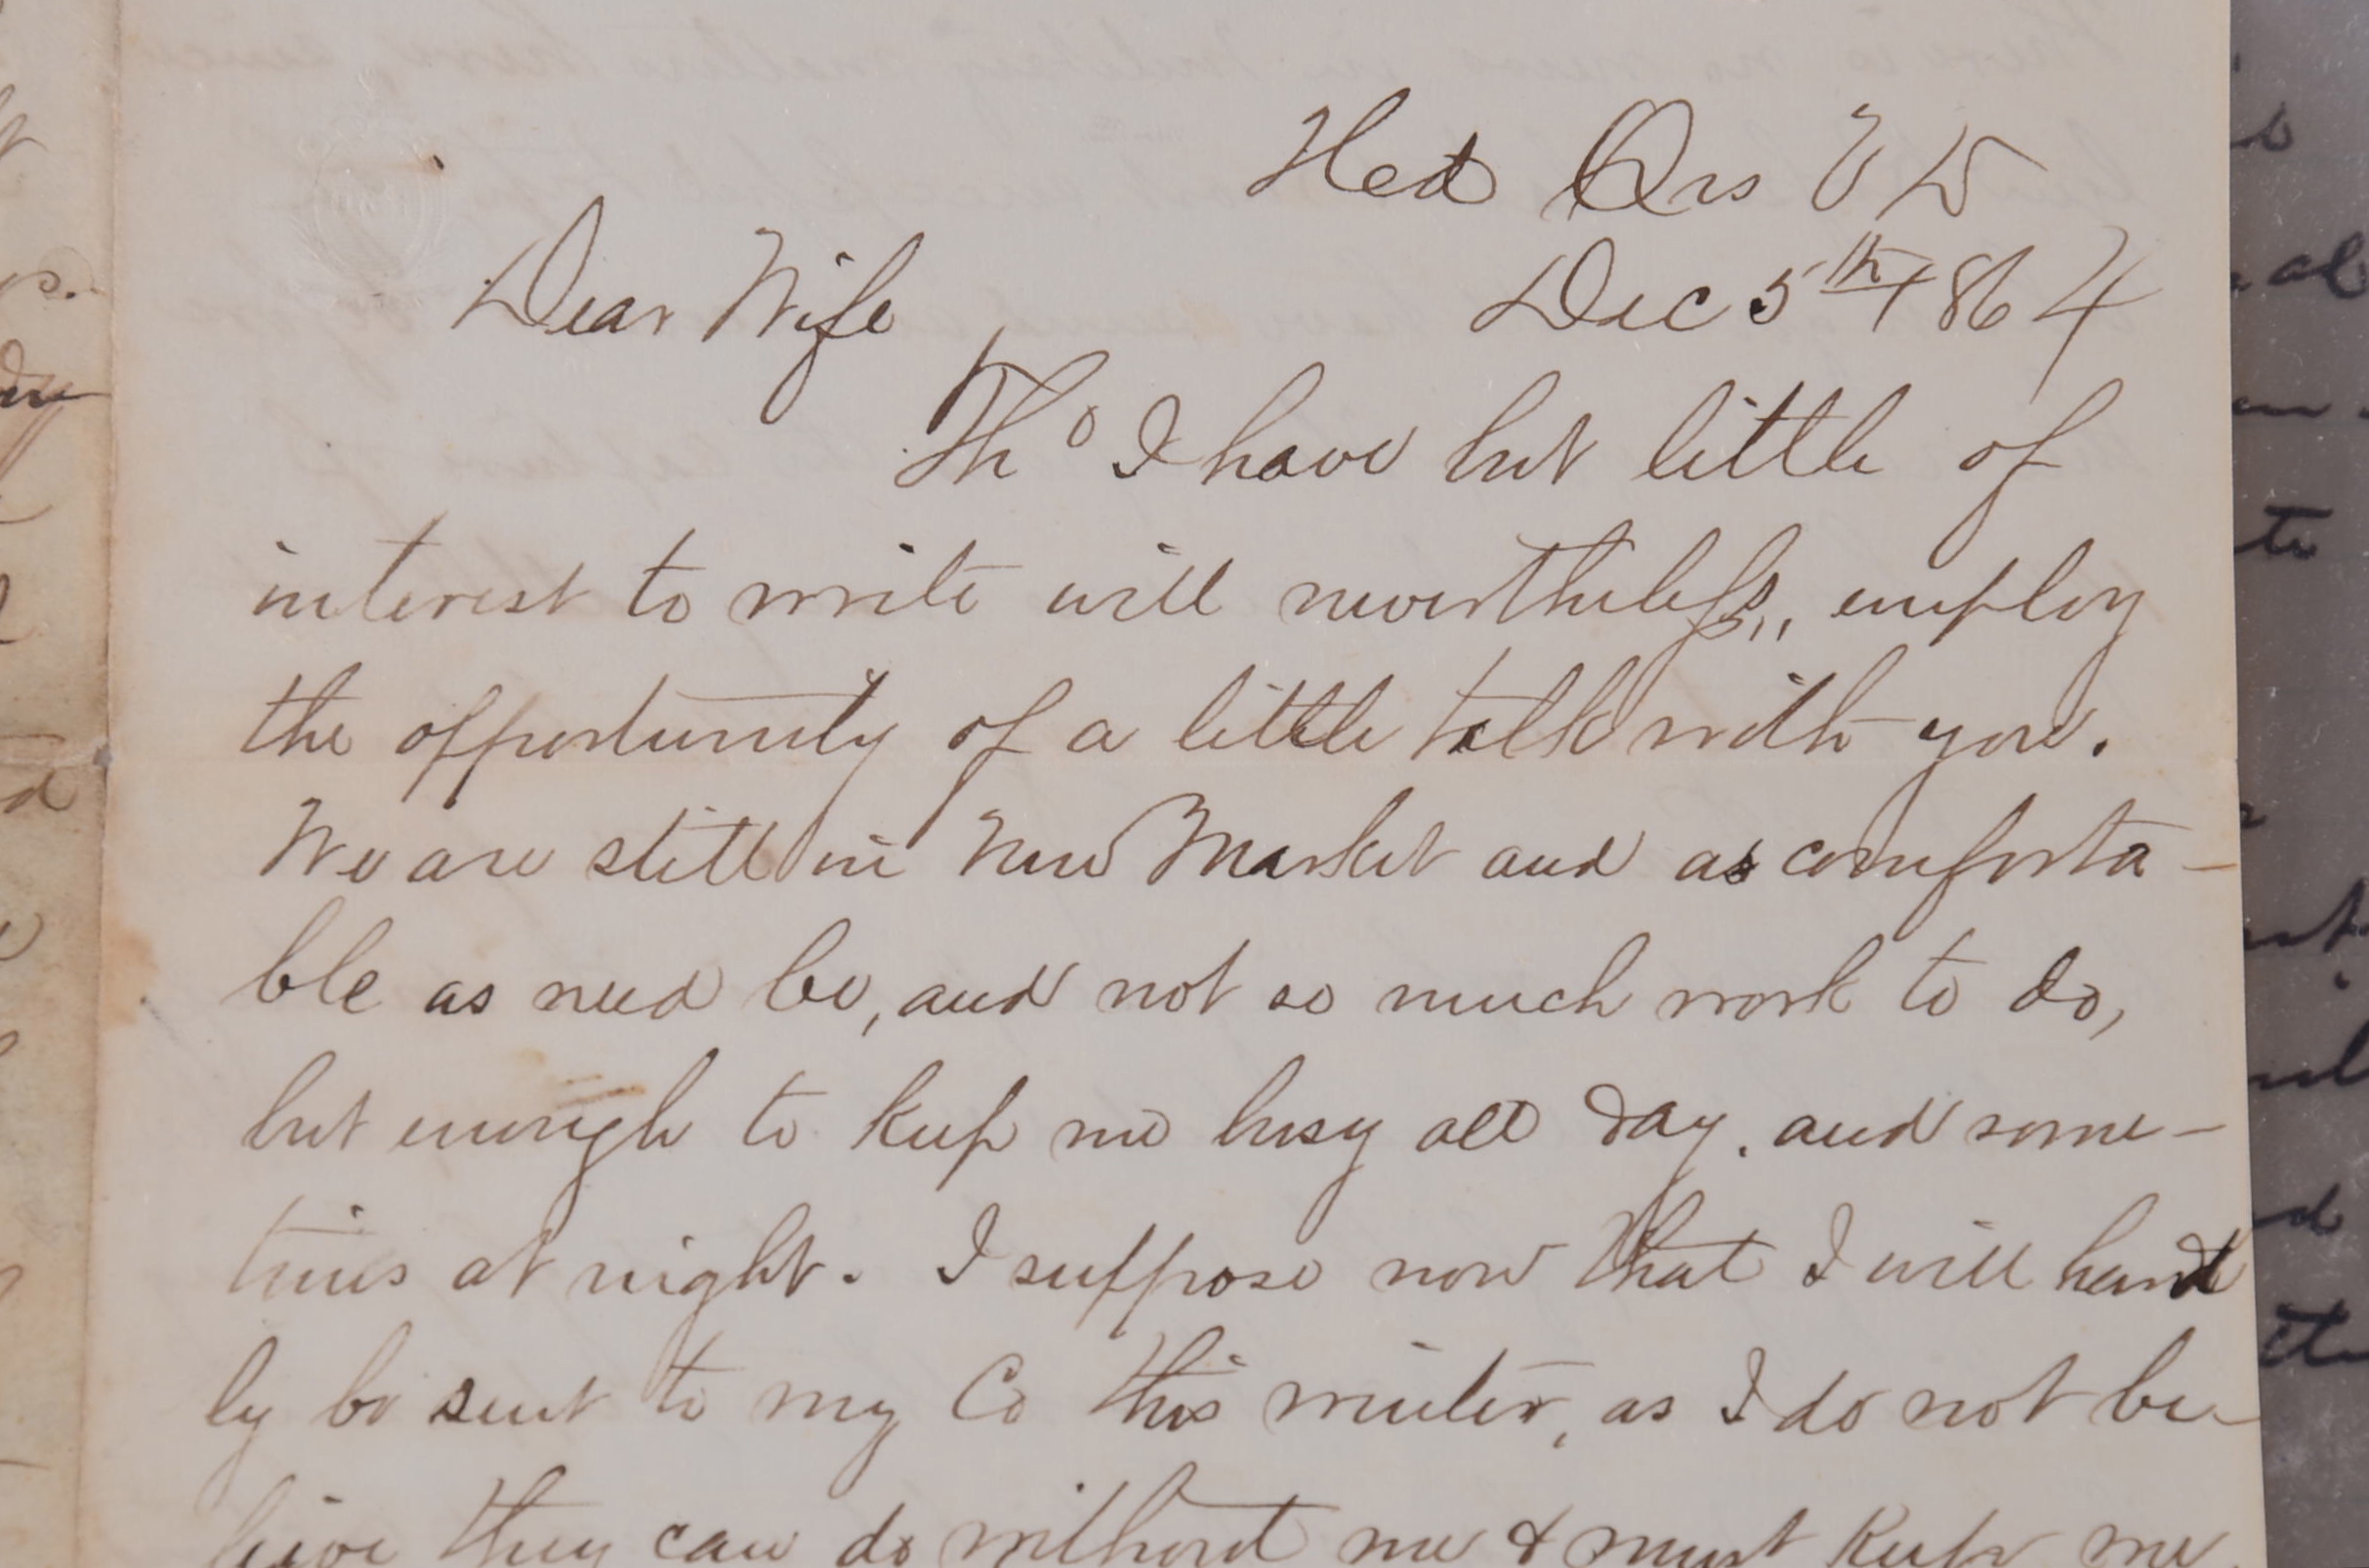 Hed Qrs V D
Dear Wife Dec 5th 1864
Tho I have but little of
interest to write will nevertheless,, employ
the opportunity of a little talk with you.
We are still in New Market and as comforta-
ble as need be, and not so much work to do,
but enough to keep me busy all day. and some-
times at night. I suppose now that I will hard
ly be sent to my Co this winter, as I do not be-
lieve they can do without me & must keep me